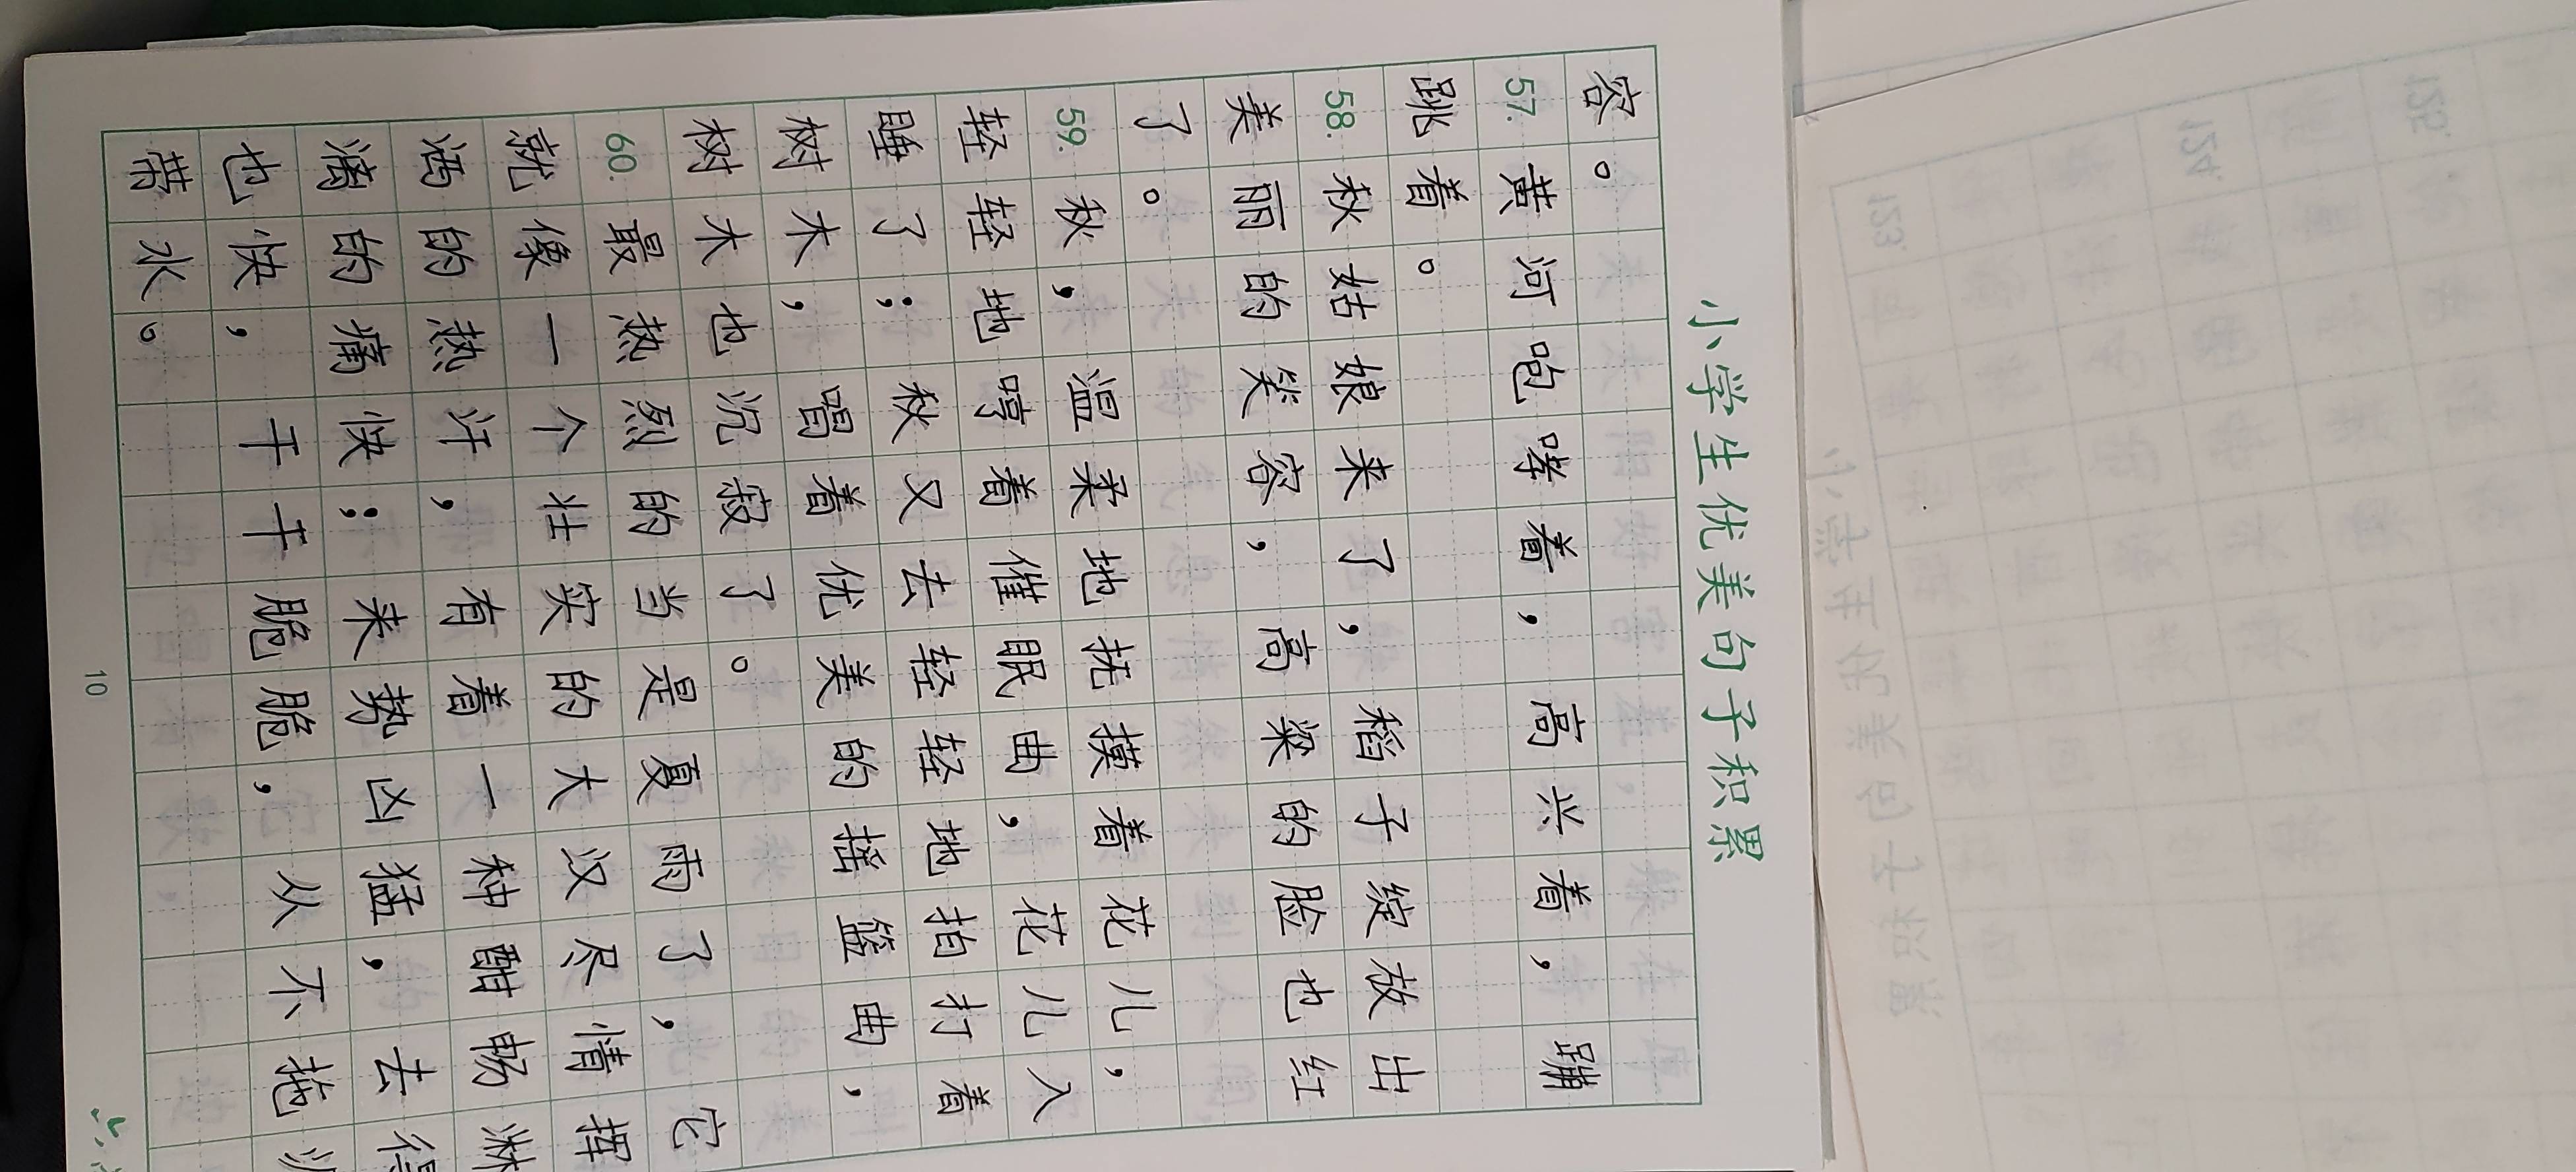 小学生优美句子积累
容。
57. 黄河咆哮着，高兴着，蹦
跳着。
58. 秋姑娘来了，稻子绽放出
美丽的笑容，高粱的脸也红
了。
59. 秋，温柔地抚摸着花儿，
轻轻地哼着催眠曲，花儿入
睡了；秋又去轻轻地拍打着
树木，唱着优美的摇篮曲，
树木也沉寂了。
60. 最热烈的当是夏雨了，它
就像一个壮实的大汉尽情挥
洒的热汗，有着一种酣畅淋
漓的痛快；来势凶猛，去得
也快，干干脆脆，从不拖
带水。
10